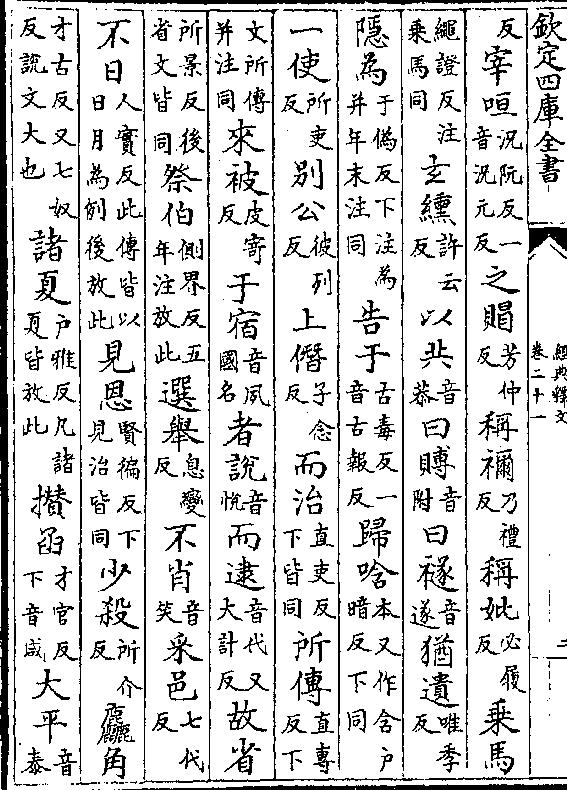 欽定四庫全書
經典釋文
卷二十一
二
反宰咺況阮反一音況元反之賵芳仲反稱禰乃禮反稱妣必履反乘馬
繩證反注乘馬同玄纁許云反以共音恭曰賻音附曰禭音遂猶遺唯季反
隱為于偽反下注為并年末注同告于古毒反一音古報反歸唅本又作含户暗反下同
一使所吏反别公彼列反上僭子念反而治直吏反下皆同所傳直專反下
文所傳并注同來被皮寄反于宿音夙國名者說音悅而逮音代又大計反故省
所景反後省文皆同祭伯側界反五年注放此選舉息變反不肖音笑采邑七代反
不日人實反此傳皆以日月為例後放此見恩賢徧反下見治皆同少殺所介反麤角
才古反又七奴反說文大也諸夏户雅反凡諸夏皆放此攅函才官反下音咸大平音泰